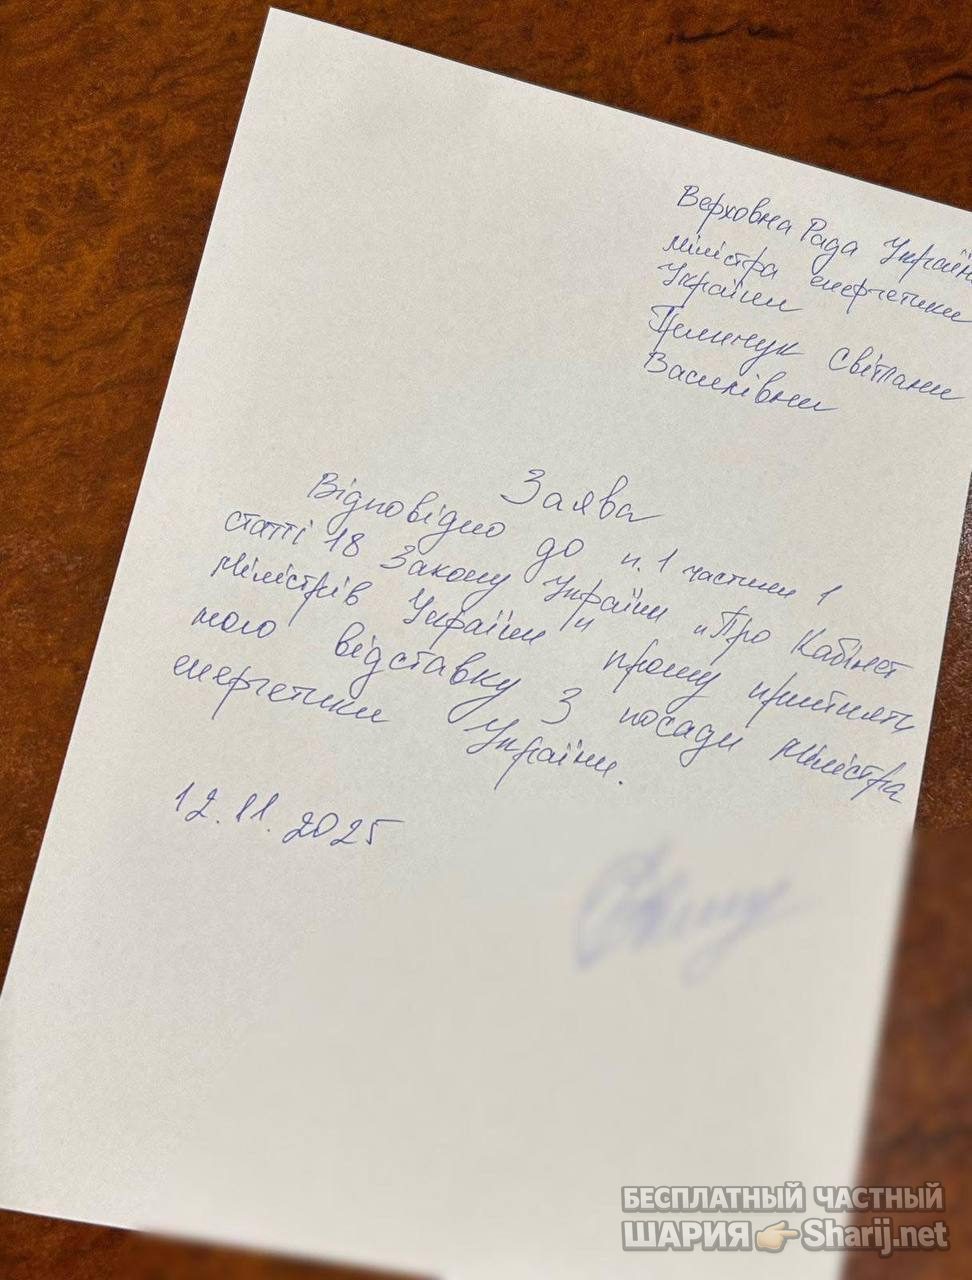 Верховна Рада Україн
міністра енергетики
України
Гринчук Світлани
Василівни
Заява
Відповідно до п. 1 частини 1
статті 18 Закону України "Про Кабінет
Міністрів України" прошу прийняти
мою відставку з посади міністра
енергетики України.
12.11.2025
БЕСПЛАТНЫЙ ЧАСТНЫЙ
ШАРИЯ👉Sharij.net